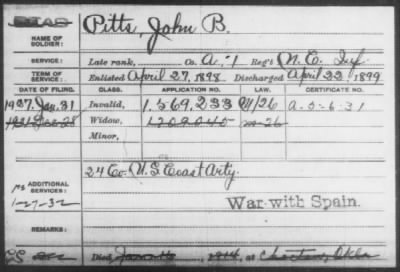 DEAD
NAME OF SOLDIER: Pitts, John B.
SERVICE: Late rank, Co. A, 1 Reg't N.C. Inf.
TERM OF SERVICE: Enlisted April 27, 1898 Discharged April 22 1899
DATE OF FILING. CLASS. APPLICATION NO. LAW. CERTIFICATE NO.
1927. Jan. 31 Invalid, 1.569,233 M/26 A-5-6-31
1931 28 Widow, 1709045 m-26
Minor,
24 Co. U.S. Coast Arty.
ADDITIONAL SERVICES:
1-27-32
War with Spain.
REMARKS:
Died at Okla